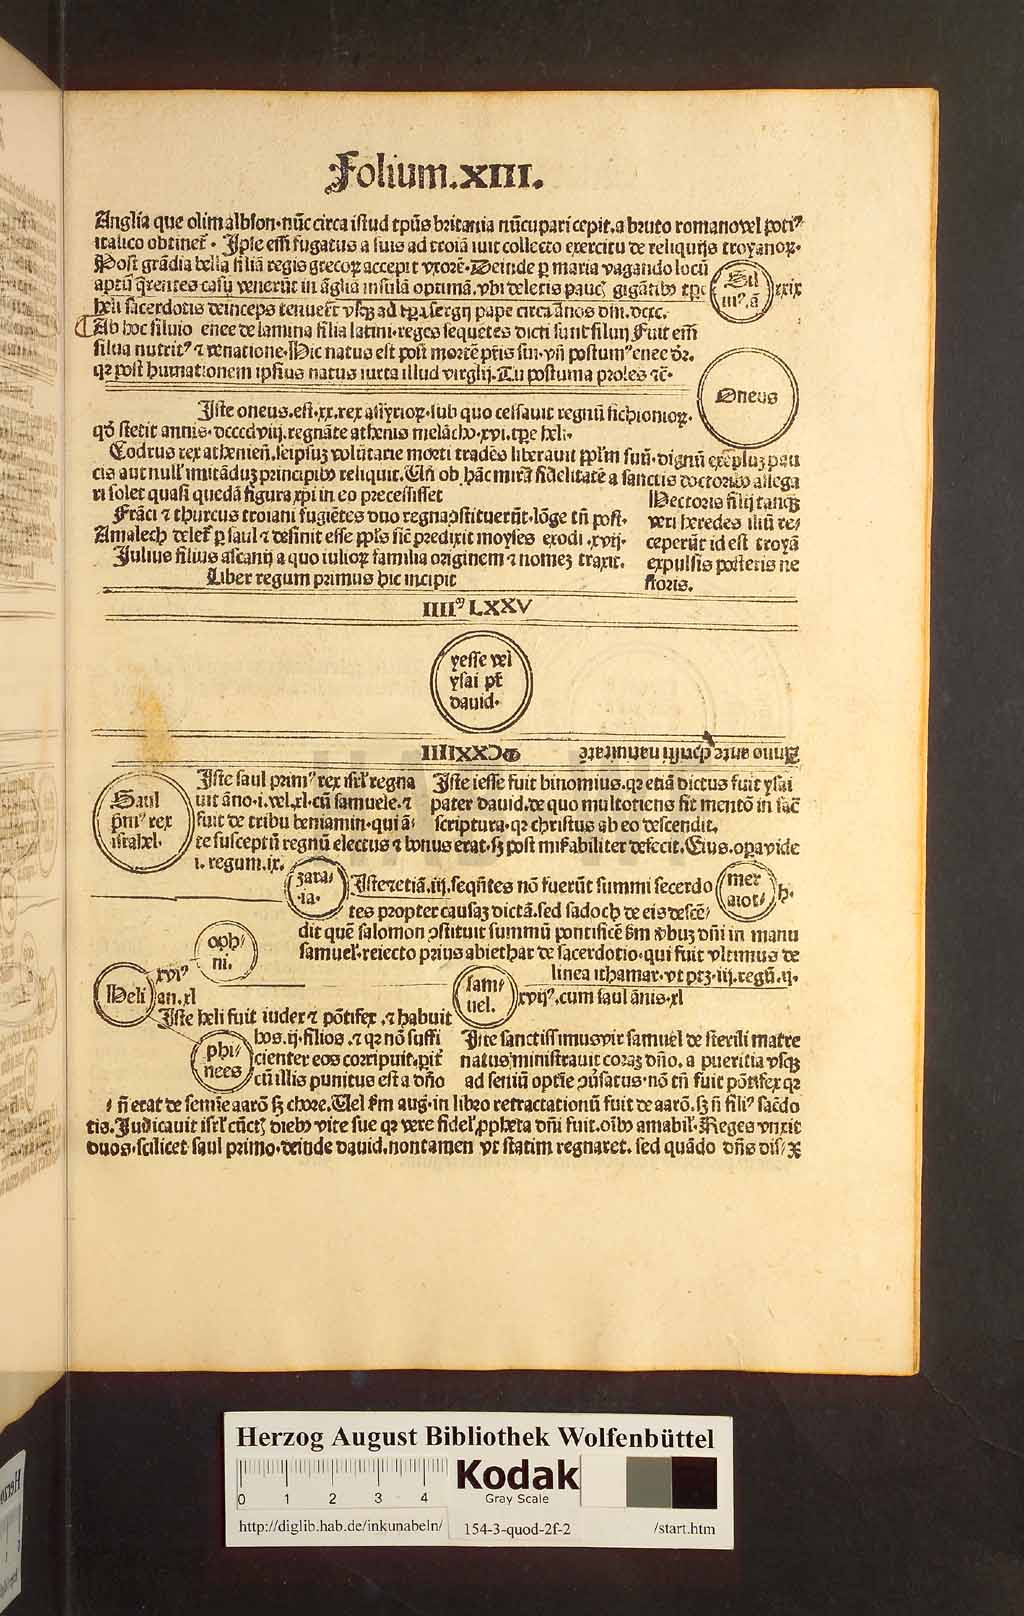 Folium.XIII.
Anglia que olim albion·nũc circa istud tp̄us britania nũcupari cepit.a bruto romano vel poti⁹
italico obtinet̃· Ipse em̃ fugatus a suis ad troiã iuit collecto exercitu de reliquijs troyanoꝝ·
Post grãdia bella filiã regis grecoꝝ accepit vxorẽ·Deinde ꝑ maria vagando locũ
aptũ q̃rentes casu venerũt in ãgliã insulã optimã.vbi deletis paucꝭ gigãtibꝰ tꝑe
Sil
ui⁹.ã
xxix
heli sacerdotis deinceps tenuer̃t vsqꝫ ad tꝑa sergij pape circa ãnos dñi.dcxc.
Ab hoc siluio enee de lamina filia latini·reges sequẽtes dicti sunt siluij Fuit em̃
silua nutrit⁹ ⁊ venatione·Hic natus est post mortẽ pr̃is sui·vñ postum⁹ enee dr̃.
qꝛ post humationem ipsius natus iuxta illud virgilij·Tu postuma proles ⁊c̃·
Oneus
Iste oneus.est.xx.rex assyrioꝝ.sub quo cessauit regnũ sichionioꝝ.
qđ stetit annis·dcccclviij.regnãte athenis melãcho·xvi.tꝑe heli·
Codrus rex atheniẽñ.seipsuꝫ volũtarie morti tradẽs liberauit ꝓplm̃ suũ·dignũ exẽpluꝫ pau
cis aut null' imitãduꝫ principibꝰ reliquit.Vñ ob hãc mirã fidelitatẽ a sanctis doctoribꝰ allega
ri solet quasi quedã figura xp̃i in eo precessisset
Frãci ⁊ thurcus troiani fugiẽtes duo regna ꝯstituerũt·lõge tñ post·
Amalech delet̃ ꝑ saul ⁊ desinit esse ppl's sic̃ predixit moyses exodi .xvij·
Julius filius ascanij a quo iulioꝝ familia originem ⁊ nomeꝫ traxit.
Liber regum primus hic incipit
Hectoris filij tanqꝫ
veri heredes iliũ re⸗
ceperũt id est troyã
expulsis posteris ne
storis.
IIII⁹ LXXV
yesse vel
ysai pr̃
dauid·
Anno ante christi natiuitatẽ
MCXXIIII
Saul
p̃m⁹ rex
israhel·
Iste saul prim⁹ rex isrl' regna
uit ãno·i.vel.xl.cũ samuele.⁊
fuit de tribu beniamin·qui ã⸗
te susceptũ regnũ electus ⁊ bonus erat·sꝫ post mirabiliter defecit.Eius.opa vide
i. regum.ix.
Iste iesse fuit binomius.qꝛ etiã dictus fuit ysai
pater dauid.de quo multotiens fit mentõ in sac̃
scriptura·qꝛ christus ab eo descendit.
zara⸗
·ia·
Iste ⁊ etiã.iij.seqñtes nõ fuerũt summi sacerdo
mer
aiot⸗
h·
tes propter causaꝫ dictã.sed sadoch de eis descẽ⸗
dit quẽ salomon ꝯstituit summũ pontificẽ sm̃ ꝟbuꝫ dñi in manu
samuel'·reiecto prius abiethar de sacerdotio·qui fuit vltimus de
linea ithamar·vt ptꝫ·iij.regũ.ij·
oph⸗
ni.
Heli
xvi⁹
an.xl
sam⸗
uel.
xvij⁹.cum saul ãnis.xl
Iste heli fuit iudex ⁊ põtifex .⁊ habuit
phi⸗
nees
hos.ij.filios .⁊ qꝛ nõ suffi
cienter eos corripuit.piť
cũ illis punitus est a dño
Iste sanctissimus vir samuel de sterili matre
natus ministrauit coraꝫ dño. a pueritia vsqꝫ
ad seniũ optĩe ꝯũsatus·nõ tñ fuit põtifex qꝛ
ñ erat de semĩe aarõ sꝫ chore.Vel sm̃ aug·in libro retractationũ fuit de aarõ.sꝫ ñ fili⁹ sac̃do
tis.Judicauit isrl' cũctꝭ diebꝰ vite sue qꝛ vere fidel' ꝓpheta dñi fuit.oĩbꝰ amabil'·Reges vnxit
duos·scilicet saul primo·deinde dauid.non tamen vt statim regnaret. sed quãdo dñs dis⸗
Herzog August Bibliothek Wolfenbüttel
0 1 2 3 4
Kodak
Gray Scale
http://diglib.hab.de/inkunabeln/ 154-3-quod-2f-2 /start.htm